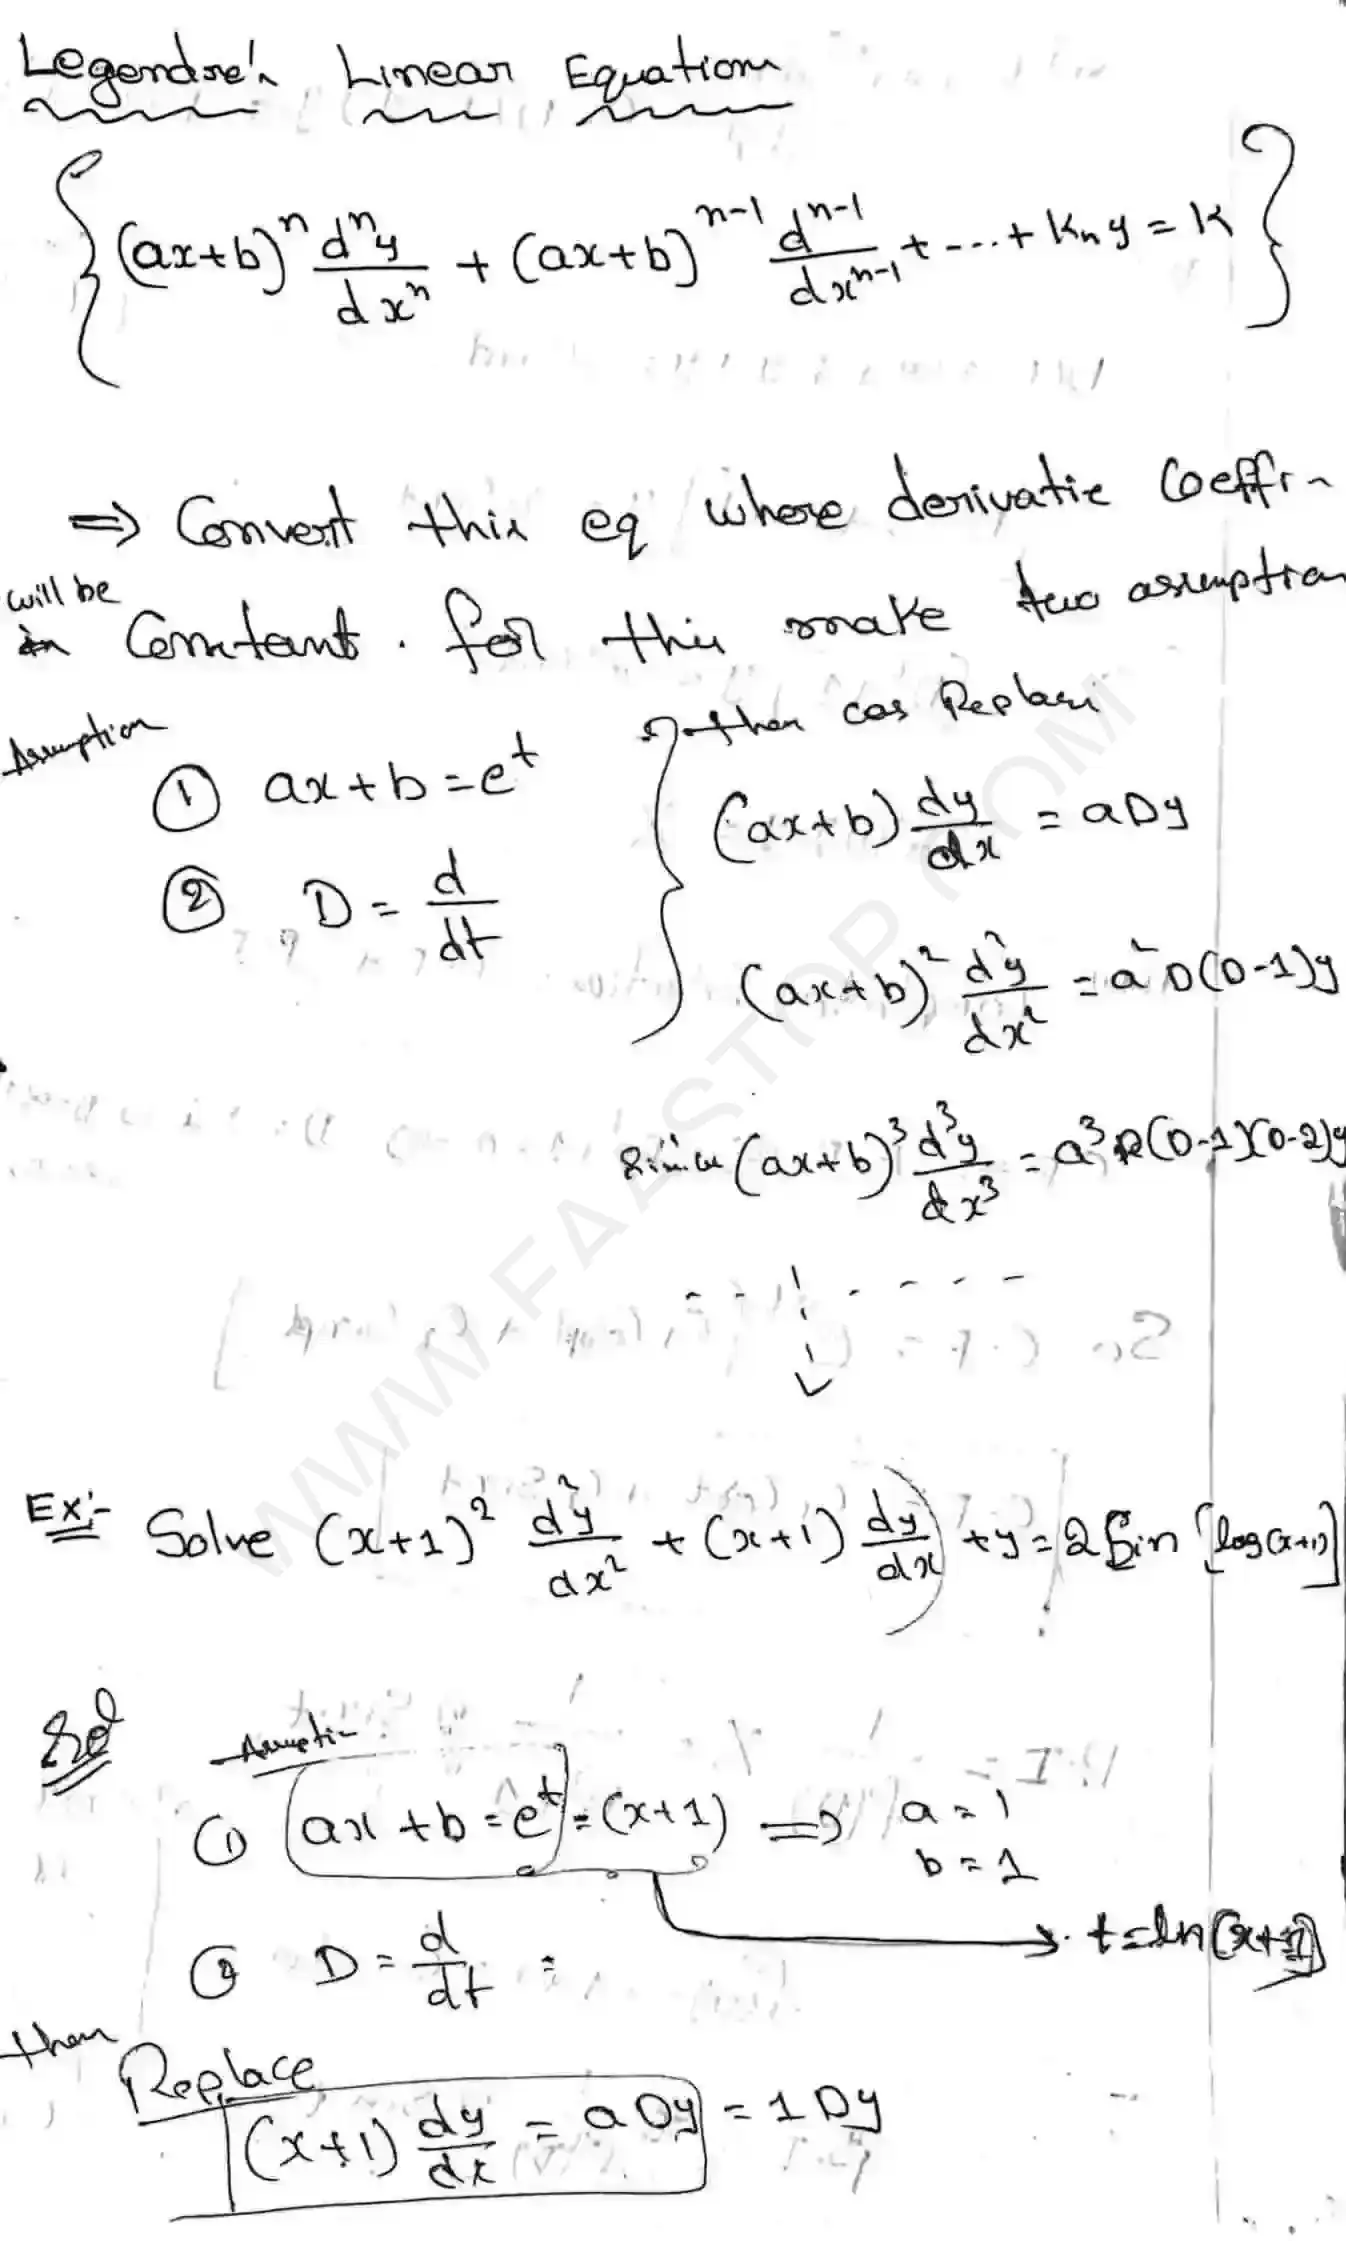 Legendre's Linear Equation
{ (ax+b)^n d^n y/dx^n + (ax+b)^(n-1) d^(n-1)/dx^(n-1) + --.. + Kn y = K }
⇒ Convert this eq where derivatie Coeffi-
will be
in Constant. for this make two assumption
Assumption
① ax+b = e^t
② D = d/dt
then can Replace
(ax+b) dy/dx = aDy
(ax+b)² d²y/dx² = a² D(D-1)y
(ax+b)³ d³y/dx³ = a³ D(D-1)(D-2)y
Ex:- Solve (x+1)² d²y/dx² + (x+1) dy/dx) + y = 2 Sin [log(x+1)]
Sol
Assumptin
① ax+b = e^t = (x+1) ⇒ a = 1
b = 1
t = ln(x+1)
② D = d/dt =
then
Replace
(x+1) dy/dx = aDy = 1Dy
WWW.FAASTOP.COM